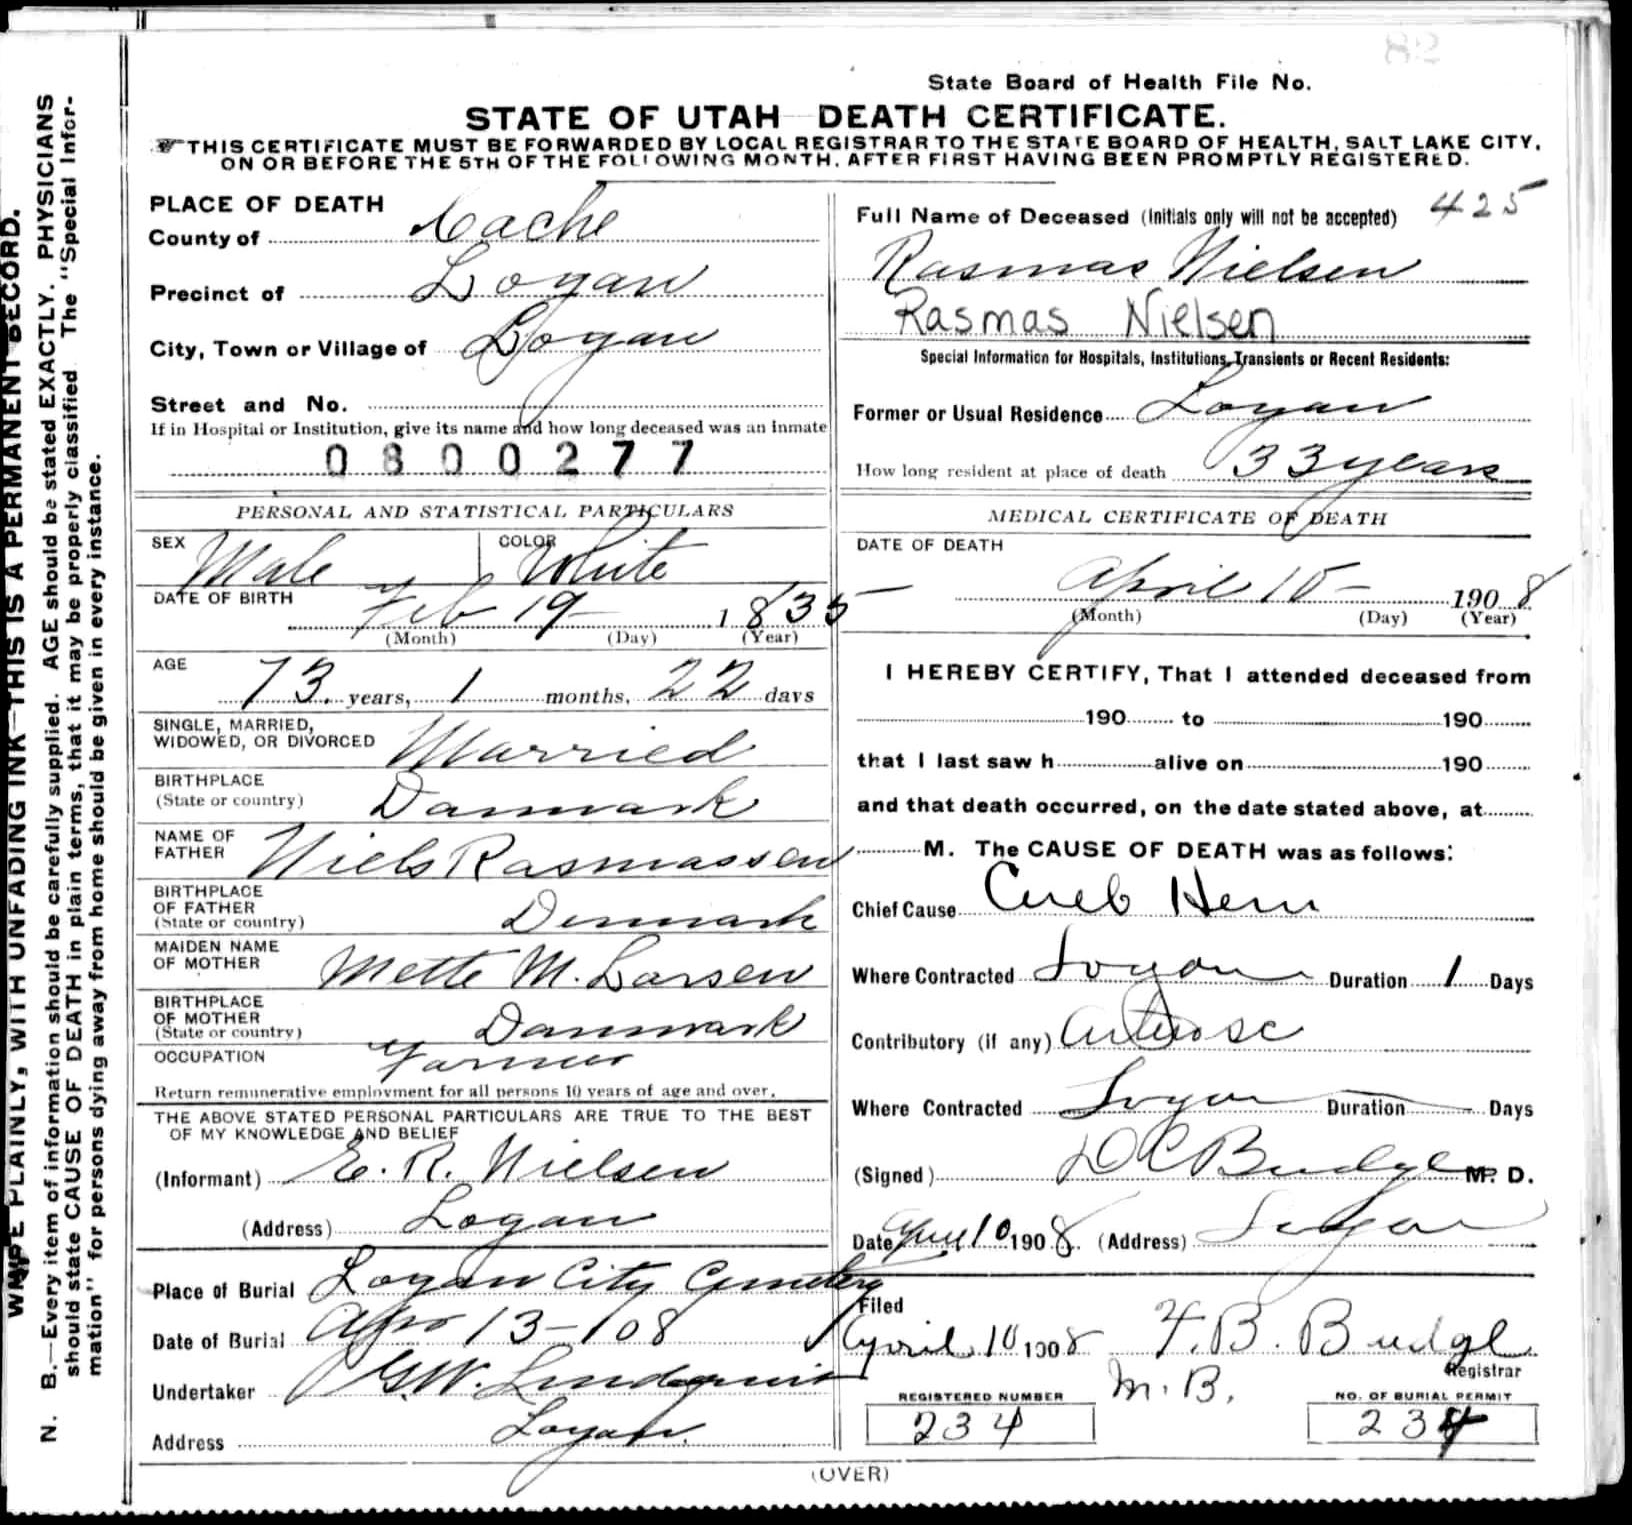 State Board of Health File No.
STATE OF UTAH DEATH CERTIFICATE.
THIS CERTIFICATE MUST BE FORWARDED BY LOCAL REGISTRAR TO THE STATE BOARD OF HEALTH, SALT LAKE CITY,
ON OR BEFORE THE 5TH OF THE FOLLOWING MONTH, AFTER FIRST HAVING BEEN PROMPTLY REGISTERED.
PLACE OF DEATH
County of Cache
Precinct of Logan
City, Town or Village of Logan
Street and No.
If in Hospital or Institution, give its name and how long deceased was an inmate
0800277
PERSONAL AND STATISTICAL PARTICULARS
SEX Male COLOR White
DATE OF BIRTH Feb 19 1835
(Month) (Day) (Year)
AGE
73 years, 1 months, 22 days
SINGLE, MARRIED,
WIDOWED, OR DIVORCED Married
BIRTHPLACE
(State or country) Danmark
NAME OF
FATHER Niels Rasmassen
BIRTHPLACE
OF FATHER
(State or country) Denmark
MAIDEN NAME
OF MOTHER Mette M. Larsen
BIRTHPLACE
OF MOTHER
(State or country) Danmark
OCCUPATION Farmer
Return remunerative employment for all persons 10 years of age and over.
THE ABOVE STATED PERSONAL PARTICULARS ARE TRUE TO THE BEST
OF MY KNOWLEDGE AND BELIEF
(Informant) E. R. Nielsen
(Address) Logan
Place of Burial Logan City Cemetery
Date of Burial Apr 13-108
Undertaker G.W. Lindquist
Address Logan.
425
Full Name of Deceased (Initials only will not be accepted)
Rasmas Nielsen
Rasmas Nielsen
Special Information for Hospitals, Institutions, Transients or Recent Residents:
Former or Usual Residence Logan
How long resident at place of death 33 years
MEDICAL CERTIFICATE OF DEATH
DATE OF DEATH
April 10 - 1908
(Month) (Day) (Year)
I HEREBY CERTIFY, That I attended deceased from
190 to 190
that I last saw h alive on 190
and that death occurred, on the date stated above, at
M. The CAUSE OF DEATH was as follows:
Chief Cause Cereb Hem
Where Contracted Logan Duration 1 Days
Contributory (if any)
Where Contracted Logan Duration Days
(Signed) D C Budge M. D.
Date April 10 1908. (Address) Logan
Filed
April 10 1908 F. B. Budge
Registrar
M. B.
REGISTERED NUMBER
234
NO. OF BURIAL PERMIT
234
(OVER)
WRITE PLAINLY, WITH UNFADING INK—THIS IS A PERMANENT RECORD.
N. B.—Every item of information should be carefully supplied. AGE should be stated EXACTLY. PHYSICIANS
should state CAUSE OF DEATH in plain terms, that it may be properly classified. The "Special Infor-
mation" for persons dying away from home should be given in every instance.